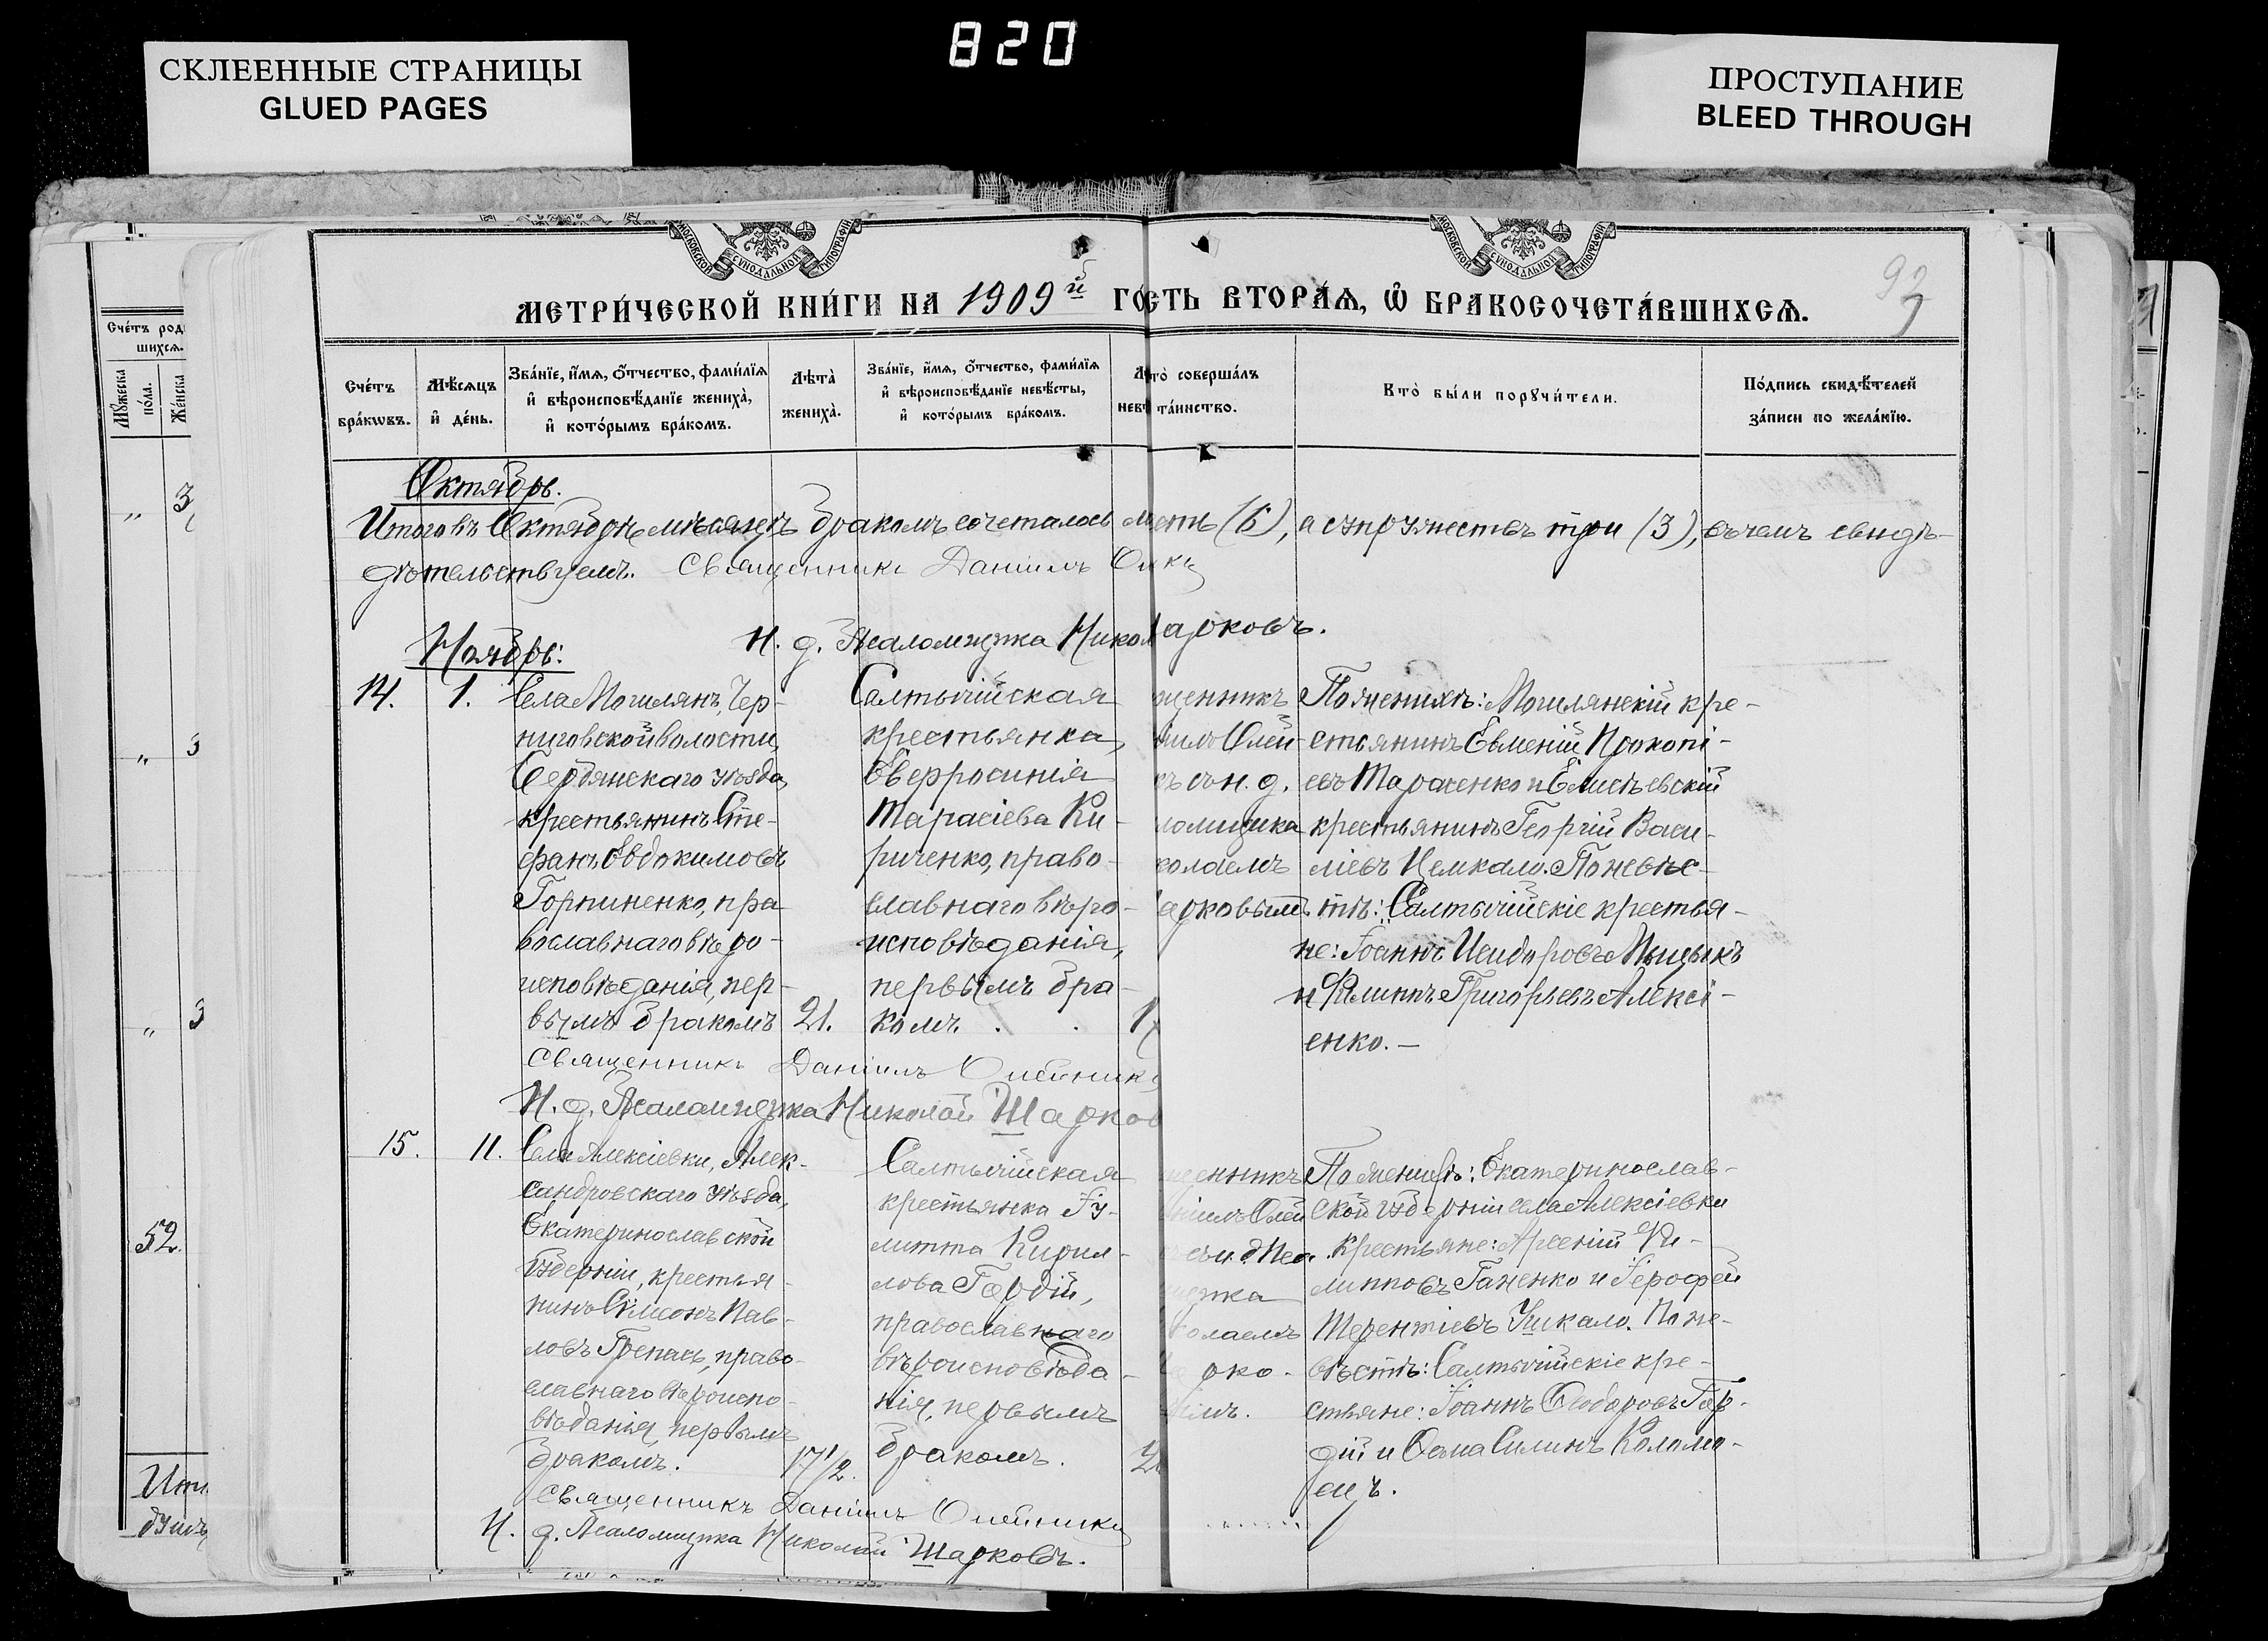 820
СКЛЕЕННЫЕ СТРАНИЦЫ
GLUED PAGES
ПРОСТУПАНИЕ
BLEED THROUGH
МОСКОВСКОЙ СѴНОДАЛЬНОЙ ТИПОГРАФІИ
МОСКОВСКОЙ СѴНОДАЛЬНОЙ ТИПОГРАФІИ
93
МЕТРИ́ЧЕСКОЙ КНИ́ГИ НА 1909й ГО
СТЬ ВТОРА́Ѧ, Ѡ҆ БРАКОСОЧЕТА́ВШИХСѦ.
Сче́тъ род
шихсѧ.
Мꙋ́жеска
по́ла.
Же́нска
Сче́тъ
бра́кѡвъ.
Мѣ́сѧцъ
и҆ де́нь.
Зва́нїе, и҆́мѧ, ѻ҆́тчество, фами́лїѧ
и҆ вѣроисповѣ́данїе жениха̀,
и҆ кото́рымъ бра́комъ.
Лѣта̀
жениха̀.
Зва́нїе, и҆́мѧ, ѻ҆́тчество, фами́лїѧ
и҆ вѣроисповѣ́данїе невѣ́сты,
и҆ кото́рымъ бра́комъ.
Лѣ
невѣ
то̀ соверша́лъ
та́инство.
Кто̀ бы́ли порꙋчи́тели.
По́дпись свидѣ́телей
за́писи по жела́нїю.
Октябрь.
Итого въ Октябрѣ мѣсяцѣ бракомъ сочеталось
шесть (6), а супружествъ три (3), въ чемъ свидѣ-
дѣтельствуемъ. Священникъ Данiилъ Ол
И. д. Псаломщика Никол
арковъ.
Ноябрь:
14.
1.
Села Могилянъ, Чер-
ниговской волости,
Бердянскаго уѣзда,
крестьянинъ Сте-
фанъ Евдокимовъ
Горпиненко, пра-
вославнаго вѣро-
исповѣданія, пер-
вымъ бракомъ
21.
Салтычійская
крестьянка,
Евфросинія
Тарасіева Ки-
риченко, право-
славнаго вѣро-
исповѣданія,
первымъ бра-
комъ.
1
щенникъ
іилъ Олей-
ъ съ и. д.
ломщика
колаемъ
арковымъ
По женихѣ: Могилянскій кре-
стьянинъ Евменій Прокопі-
евъ Тарасенко и Елисѣевскій
крестьянинъ Георгій Васи-
ліевъ Цемкало. По невѣс-
тѣ: Салтычійскіе крестья-
не: Іоаннъ Исидоровъ Мыцыкъ
и Филиппъ Григорьевъ Алексі-
енко. —
Священникъ Данiилъ Олейник
И. д. Псаломщика Николай Шарков
15.
11.
Села Алексіевки, Алек-
сандровскаго уѣзда,
Екатеринославской
губерніи, крестья-
нинъ Симеонъ Пав-
ловъ Грепась, право-
славнаго вѣроиспо-
вѣданія, первымъ
бракомъ.
17 1/2.
Салтычійская
крестьянка Іу-
литта Кирил-
лова Гордій,
православнаго
вѣроисповѣда-
нія, первымъ
бракомъ.
2
щенникъ
ніилъ Олей
съ и. д. Пса
щика
колаемъ
арко-
вымъ.
По женихѣ: Екатеринослав-
ской губерніи села Алексіевки
крестьяне: Арсеній Фи-
липповъ Ганенко и Іерофей
Терентіевъ Чикало. По не-
вѣстѣ: Салтычійскіе кре-
стьяне: Іоаннъ Ѳеодоровъ Гор-
дій и Ѳома Силинъ Коломо-
ецъ.
Священникъ Данiилъ Олейник
И. д. Псаломщика Николай Шарковъ.
„ 3
„ 3
„ 3
52.
Ито
душъ